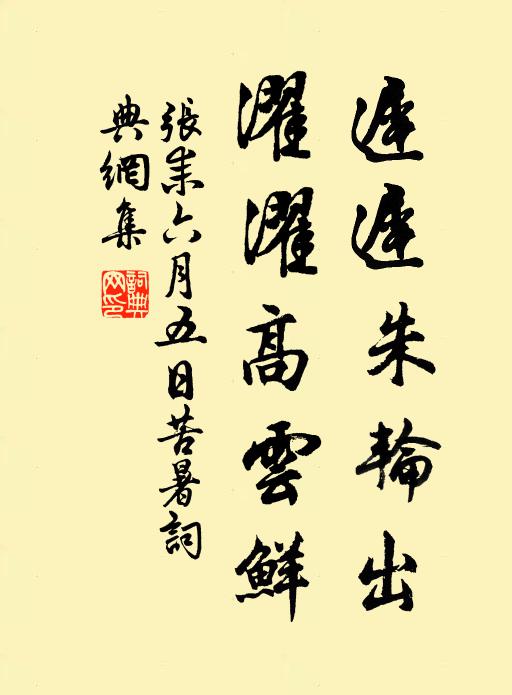 遲遲朱輪出
濯濯高雲鮮
張耒六月五日苦暑詞
典網集
詞典網印